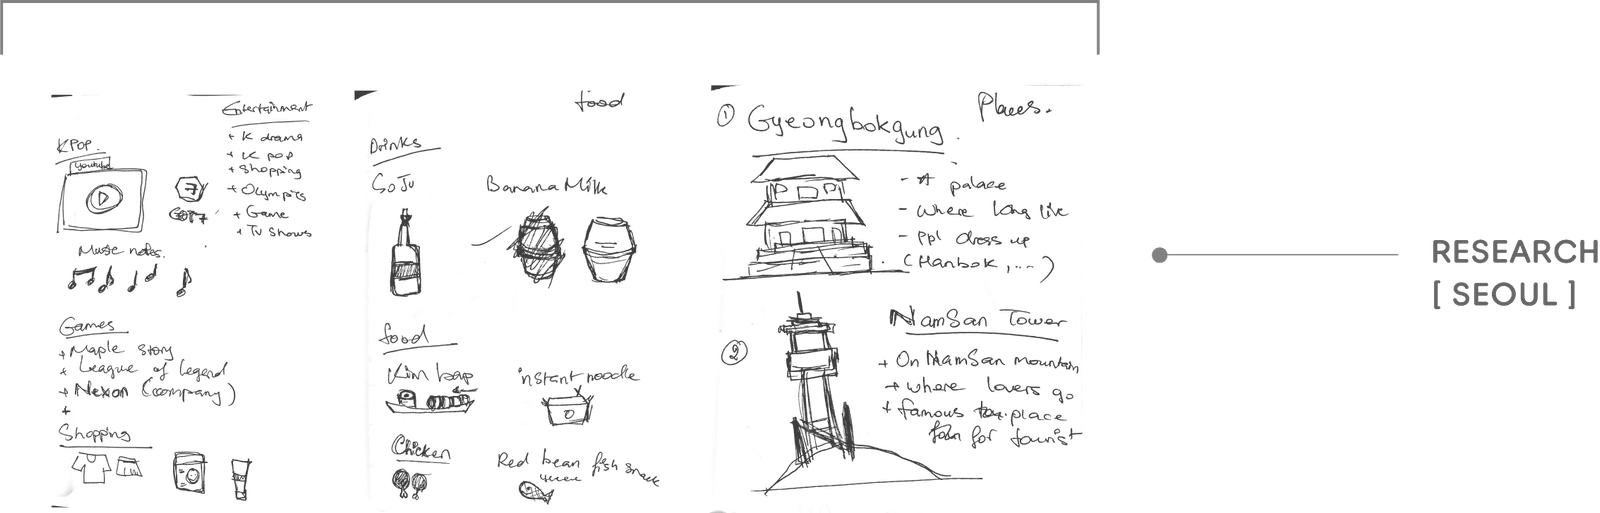 Entertainment
+ K drama
+ K pop
+ Shopping
+ Olympics
+ Game
+ TV shows
KPOP.
Youtube
7
GOT7
Music notes.
Games
+ Maple story
+ League of legend
+ Nexon (company)
+
Shopping
food
Drinks
SoJu
Banana Milk
food
Kim bap
instant noodle
Chicken
Red bean fish snack
Places.
① Gyeongbokgung.
- palace
- Where king live
- Ppl dress up
(Hanbok, ...)
②
NamSan Tower
+ On NamSan mountain
+ where lovers go
+ famous place
for tourist
RESEARCH
[ SEOUL ]